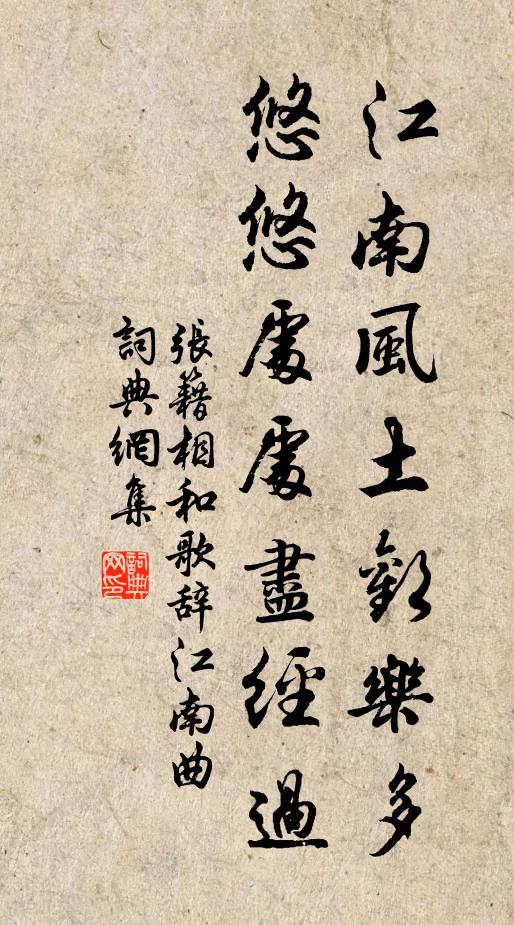 江南風土歡樂多
悠悠處處盡經過
張籍相和歌辞江南曲
詞典網集
詞典网印